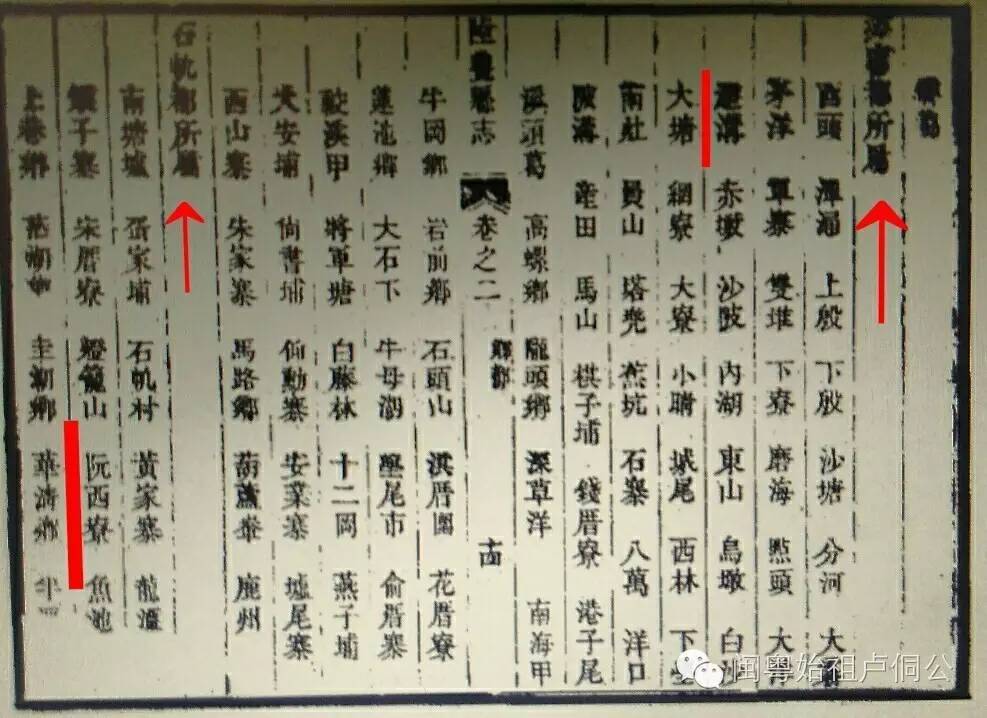 都所屬
酉頭 潭涌 上殷 下殷 沙塘 分河 大
茅洋 單寨 雙堆 下寮 磨海 點頭 大
溝 赤墩 沙陂 內湖 東山 烏墩 白沙
大塘 網寮 大寮 小聃 城尾 西林 下
南社 員山 塔兜 蕉坑 石寨 八萬 洋口
陂溝 產田 馬山 棋子埔 錢厝寮 港子尾
溪頭葛 高螺鄉 隴頭鄉 深草洋 南海甲
陸豐縣志 卷之二 鄉都 十四
牛岡鄉 岩前鄉 石頭山 洪厝圍 花厝寮
蓮池鄉 大石下 牛母湖 尾市 俞厝寨
陂溪甲 將軍塘 白藤林 十二岡 燕子埔
大安埔 尚書埔 勳寨 安業寨 墟尾寨
西山寨 朱家寨 馬路鄉 葫蘆 鹿州
石帆都所屬
南塘墟 家埔 石帆村 黃家寨 龍潭
子寨 宋厝寮 燈籠山 阮西寮 魚池
上 鄉 湖 圭湖鄉 華清鄉
闽粤始祖卢侗公